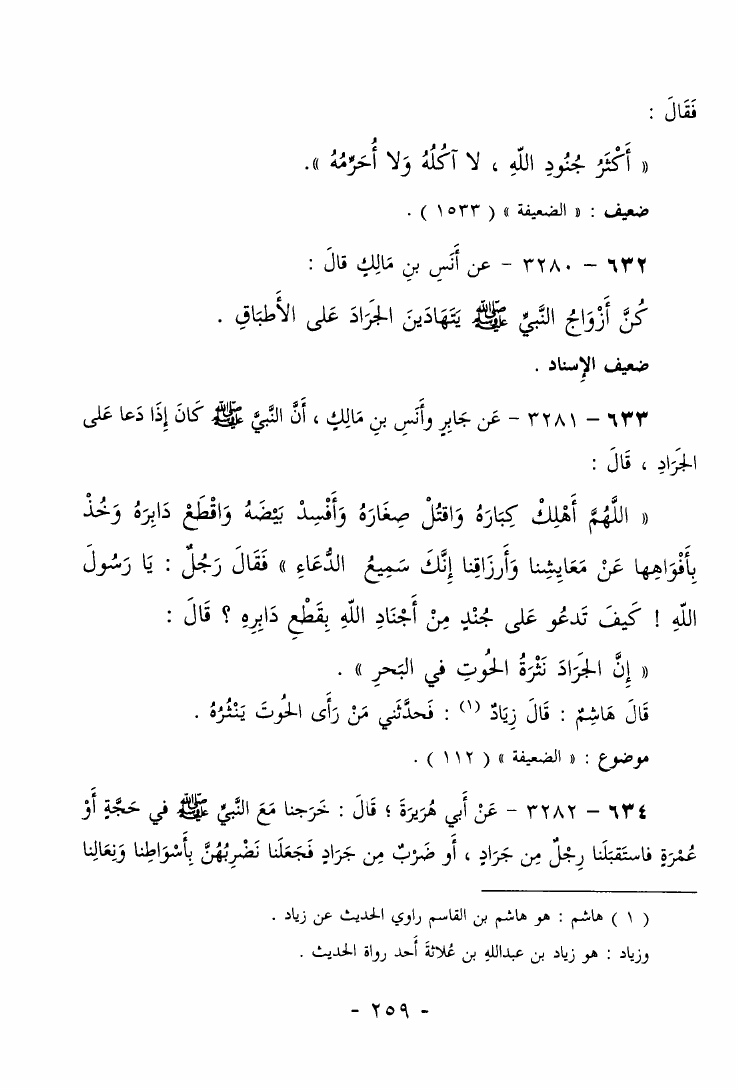 فَقَالَ :
« أَكْثَرُ جُنُودِ اللّهِ ، لا آكُلُهُ وَلا أُحَرِّمُهُ ».
ضعيف : « الضعيفة » ( ١٥٣٣ ) .
٦٣٢ – ٣٢٨٠ – عن أَنَسِ بنِ مَالِكٍ قالَ :
كُنَّ أَزْوَاجُ النَّبِيِّ ﷺ يَتَهَادَينَ الجَرَادَ عَلى الأَطبَاقِ .
ضعيف الإِسناد .
٦٣٣ – ٣٢٨١ – عَن جَابِرٍ وأَنَسِ بنِ مَالِكٍ ، أَنَّ النَّبِيَّ ﷺ كَانَ إِذَا دَعا عَلى
الجَرَادِ ، قَالَ :
« اللَّهُمَّ أَهْلِكْ كِبَارَهُ وَاقتُلْ صِغَارَهُ وَأَفْسِدْ بَيْضَهُ وَاقْطَعْ دَابِرَهُ وَخُذْ
بِأَفْوَاهِها عَنْ مَعَايشِنا وَأَرزَاقِنا إِنَّكَ سَمِيعُ الدُّعَاءِ » فَقَالَ رَجُلٌ : يَا رَسُولَ
اللّهِ ! كَيفَ تَدعُو عَلى جُنْدٍ مِنْ أَجْنَادِ اللّهِ بِقَطْعِ دَابِرِهِ ؟ قَالَ :
« إِنَّ الجَرَادَ نَثْرَةُ الحُوتِ في البَحرِ » .
قَالَ هَاشِمٌ : قَالَ زِيَادٌ (١) : فَحدَّثَني مَنْ رَأَى الحُوتَ يَنْثُرُهُ .
موضوع : « الضعيفة » ( ١١٢ ) .
٦٣٤ – ٣٢٨٢ – عَنْ أَبي هُرَيرَةَ ؛ قَالَ : خَرَجنا مَعَ النَّبِيِّ ﷺ في حَجَّةٍ أَوْ
عُمْرَةٍ فاستَقبَلَنا رِجْلٌ مِن جَرَادٍ ، أَو ضَرْبٌ مِن جَرَادٍ فَجَعَلَنا نَضْرِبُهُنَّ بِأَسْوَاطِنا وَنِعَالِنا
( ١ ) هاشم : هو هاشم بن القاسم راوي الحديث عن زياد .
وزياد : هو زياد بن عبدالله بن عُلاثةَ أَحد رواة الحديث .
- ٢٥٩ -